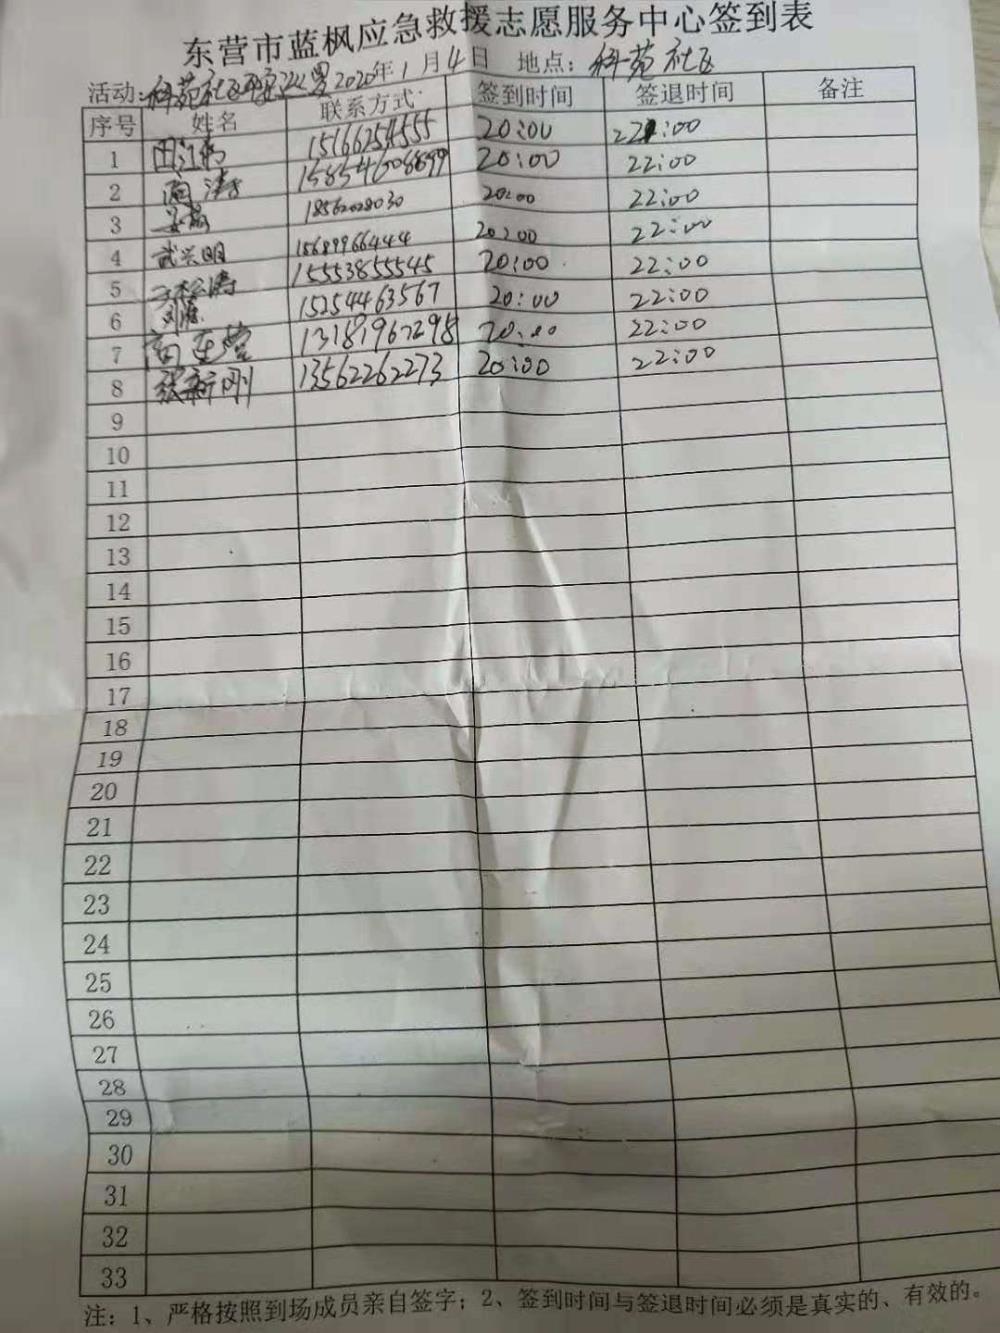 东营市蓝枫应急救援志愿服务中心签到表
活动:科苑社区平安巡逻 2020年1月4日 地点:科苑社区
序号 姓名 联系方式 签到时间 签退时间 备注
1 20:00 22:00
2 15854608899 20:00 22:00
3 18562028030 20:00 22:00
4 武兴明 15689966444 20:00 22:00
5 15553855545 20:00 22:00
6 15254463567 20:00 22:00
7 13181967298 20:00 22:00
8 张新刚 13562262273 20:00 22:00
9
10
11
12
13
14
15
16
17
18
19
20
21
22
23
24
25
26
27
28
29
30
31
32
33
注:1、严格按照到场成员亲自签字;2、签到时间与签退时间必须是真实的、有效的。